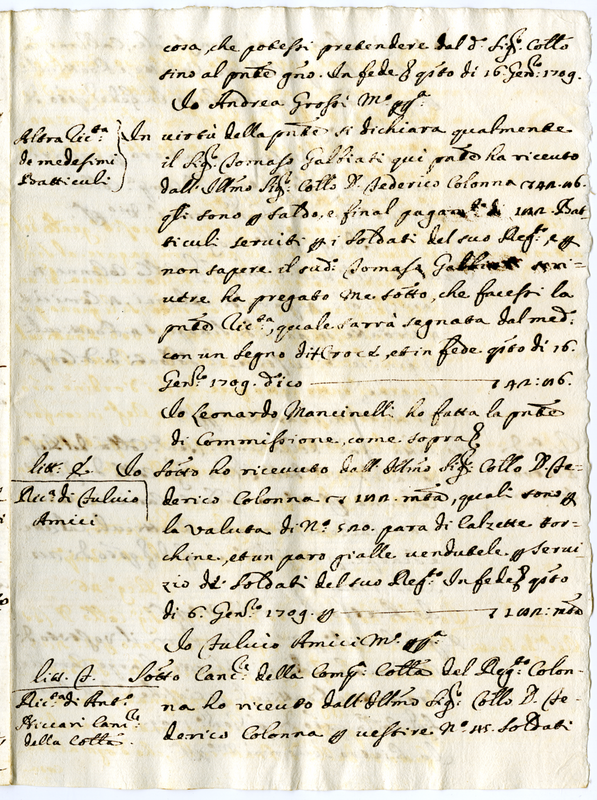 cosa, che potessi pretendere dal d.° Sig.r Collo
sino al pnte gno. In fede q.sto di 16. Gen.ro 1709.
Io Andrea Grossi M.°
Altra Ric.ta
de medesimi
Batticuli
In virtù della pnte si dichiara qualmente
il Sig.r Tomaso Galbiati qui pnte ha riceuto
dall' Illmo Sig.r Collo D. Federico Colonna
q.li sono p saldo, e final pagam.to di Bat-
ticuli seruiti p i soldati del suo Reg.to e p
non sapere il sud.° Tomaso scri-
uere ha pregato me sotto, che facessi la
pnte Ric.ta, quale sarrà segnata dal med.°
con un segno di Croce, et in fede q.sto di 16.
Gen.ro 1709. dico
Io Leonardo Mancinelli ho fatta la pnte
di Commissione come sopra
litt.
Ric.ta di Fuluio
Amici
Io sotto ho riceuuto dall' Illmo Sig.r Collo D. Fe-
derico Colonna mta, quali sono p
la ualuta di N.° 520. para di Calzette tor-
chine, et un paro gialle uendutele p serui-
zio de soldati del suo Reg.to In fede q.sto
di 6. Gen.ro 1709. p
Io Fuluio Amici M.°
litt.
Ric.ta di Ant.°
Riccari Canc.re
della Colla
Sotto Canc.re della Comp. Colla del Reg.to Colon-
na ho riceuto dall' Illmo Sig.r Collo D. Fe-
derico Colonna p uestire N.° 45. soldati